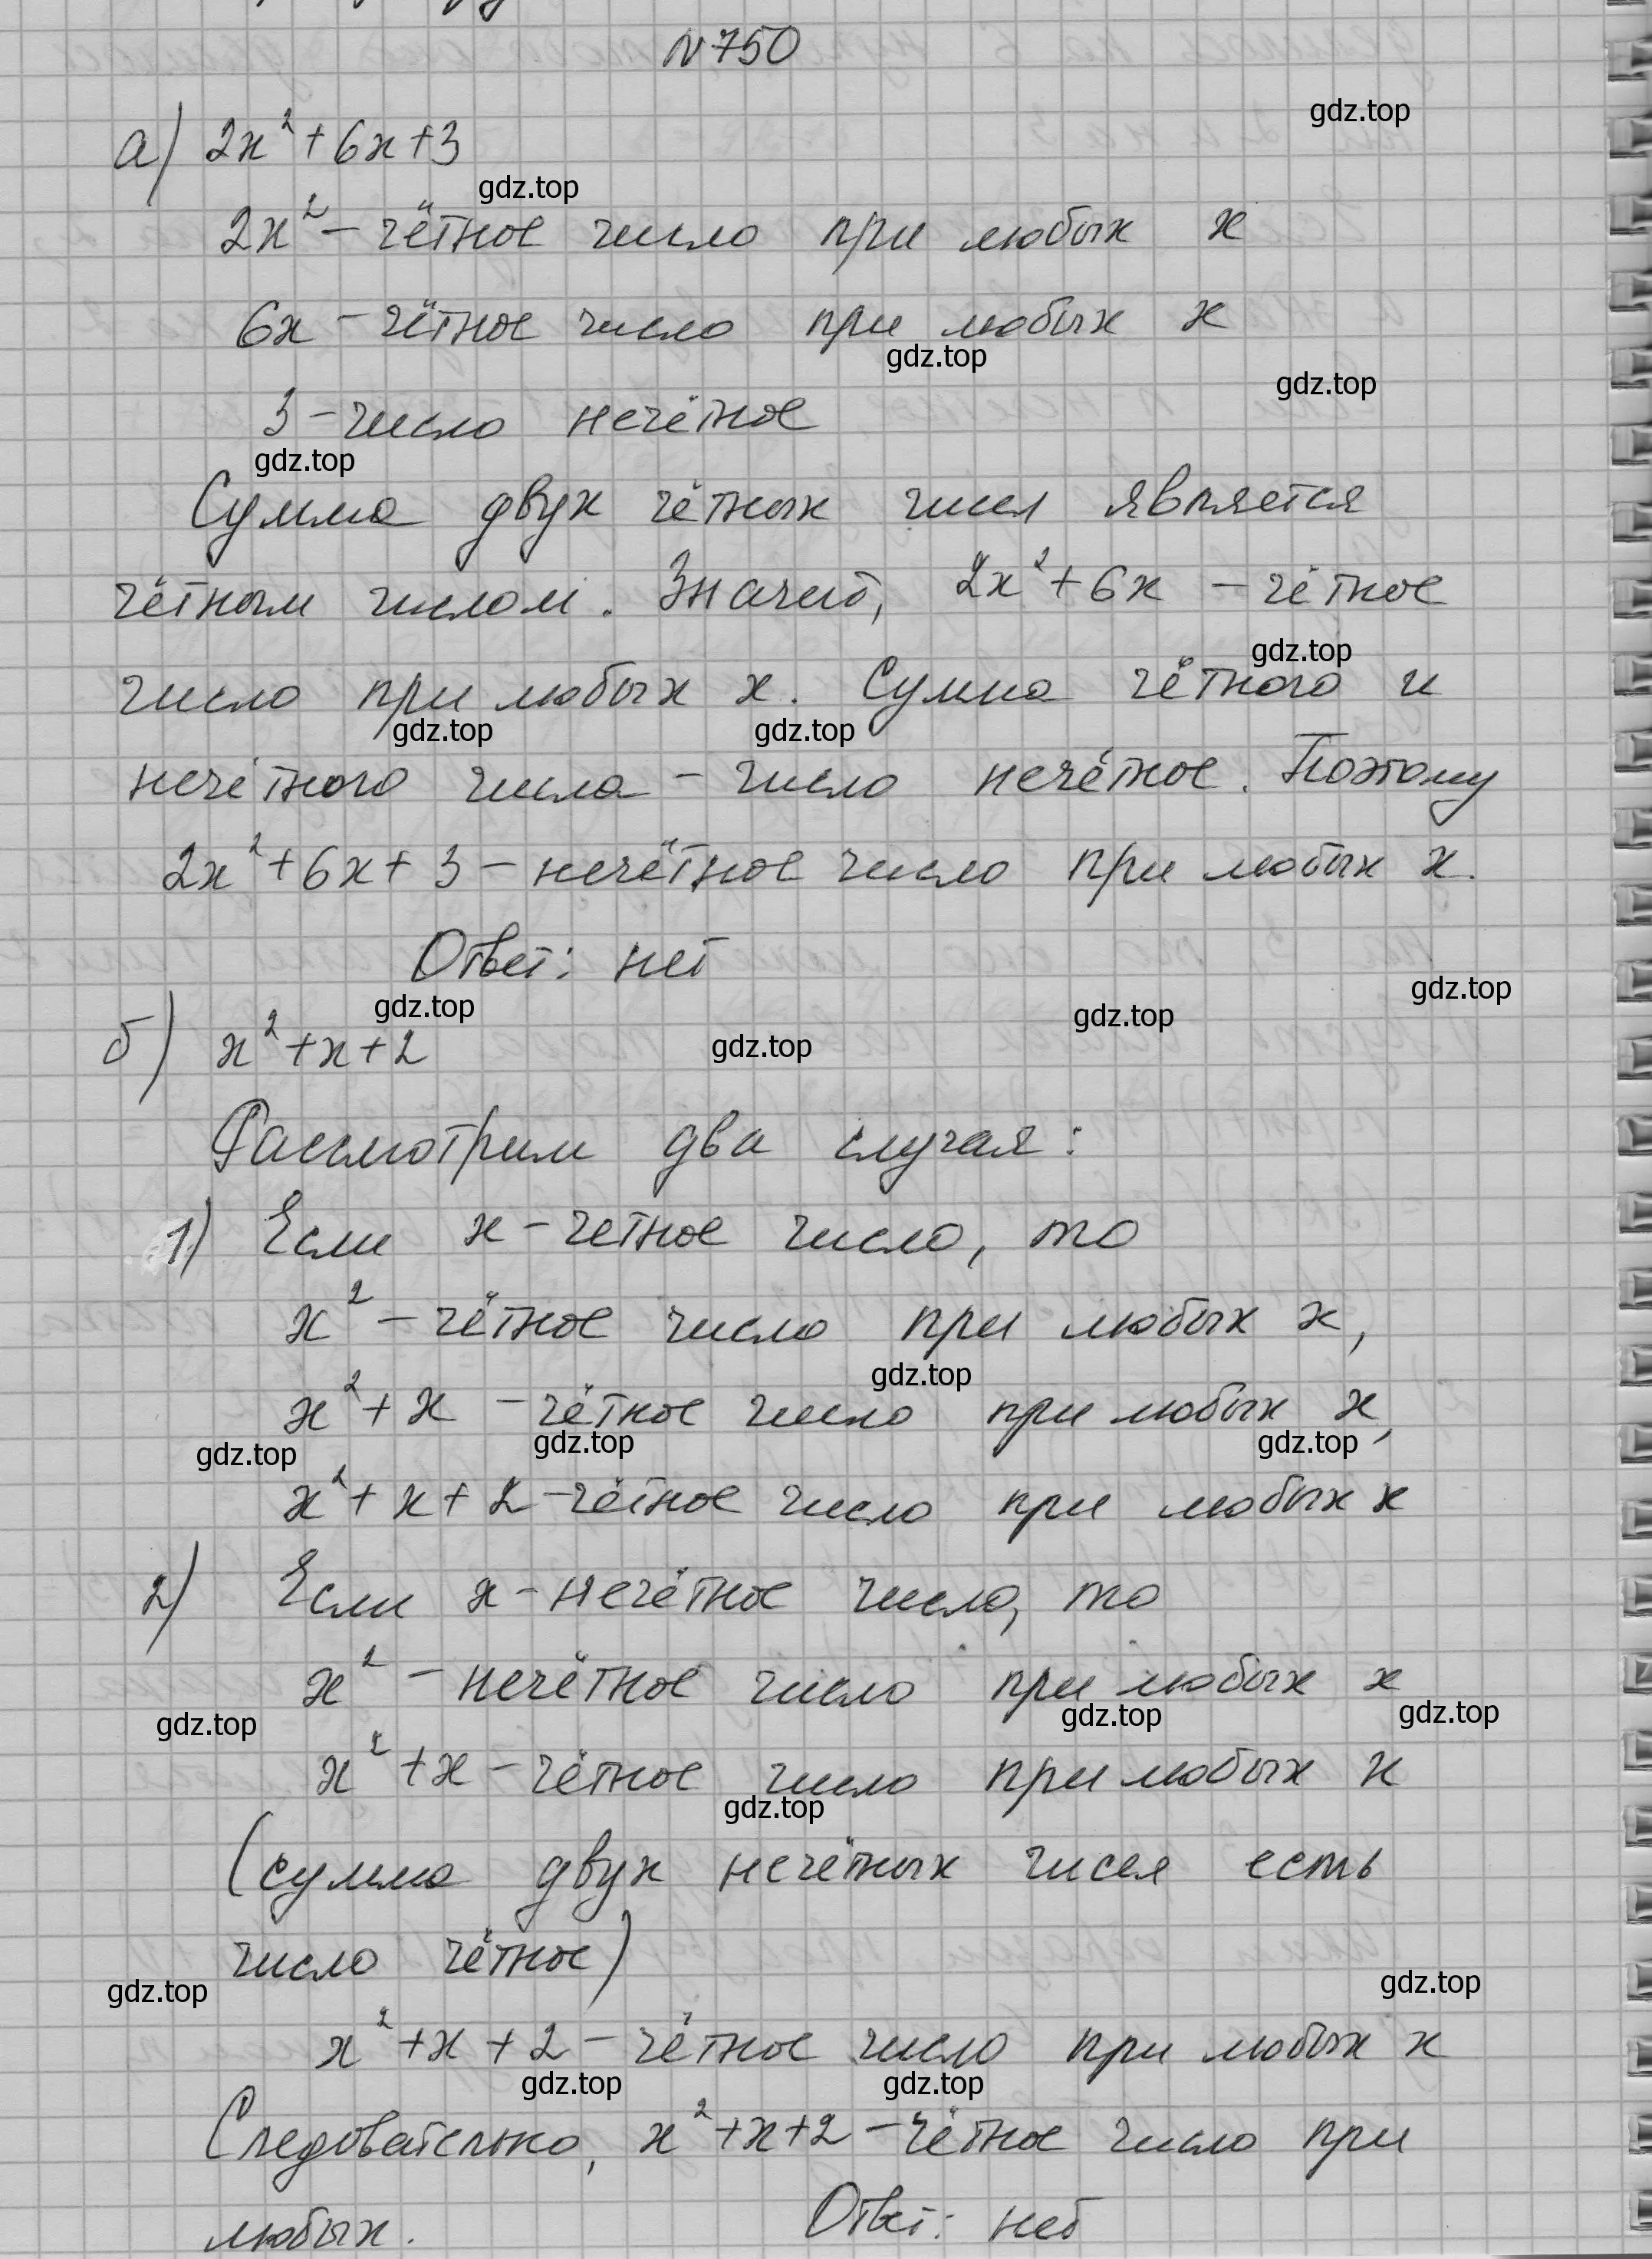 №750
gdz.top
а) 2x²+6x+3
gdz.top
2x² – чётное число при любых x
6x – чётное число при любых x
gdz.top
gdz.top
3 – число нечётное
gdz.top
Сумма двух чётных чисел является
чётным числом. Значит, 2x²+6x – чётное
gdz.top
число при любых x. Сумма чётного и
gdz.top gdz.top
нечётного числа – число нечётное. Поэтому
2x²+6x+3 – нечётное число при любых x.
Ответ: нет
gdz.top gdz.top gdz.top
б) x²+x+2
gdz.top
Рассмотрим два случая:
1) Если x – четное число, то
x² – чётное число при любых x,
gdz.top
x²+x – чётное число при любых x,
gdz.top gdz.top gdz.top
x²+x+2 – чётное число при любых x
2) Если x – нечётное число, то
x² – нечётное число при любых x
gdz.top gdz.top gdz.top
x²+x – чётное число при любых x
gdz.top
(сумма двух нечётных чисел есть
число чётное)
gdz.top gdz.top
x²+x+2 – чётное число при любых x
gdz.top gdz.top
Следовательно, x²+x+2 – чётное число при
любых. Ответ: нет